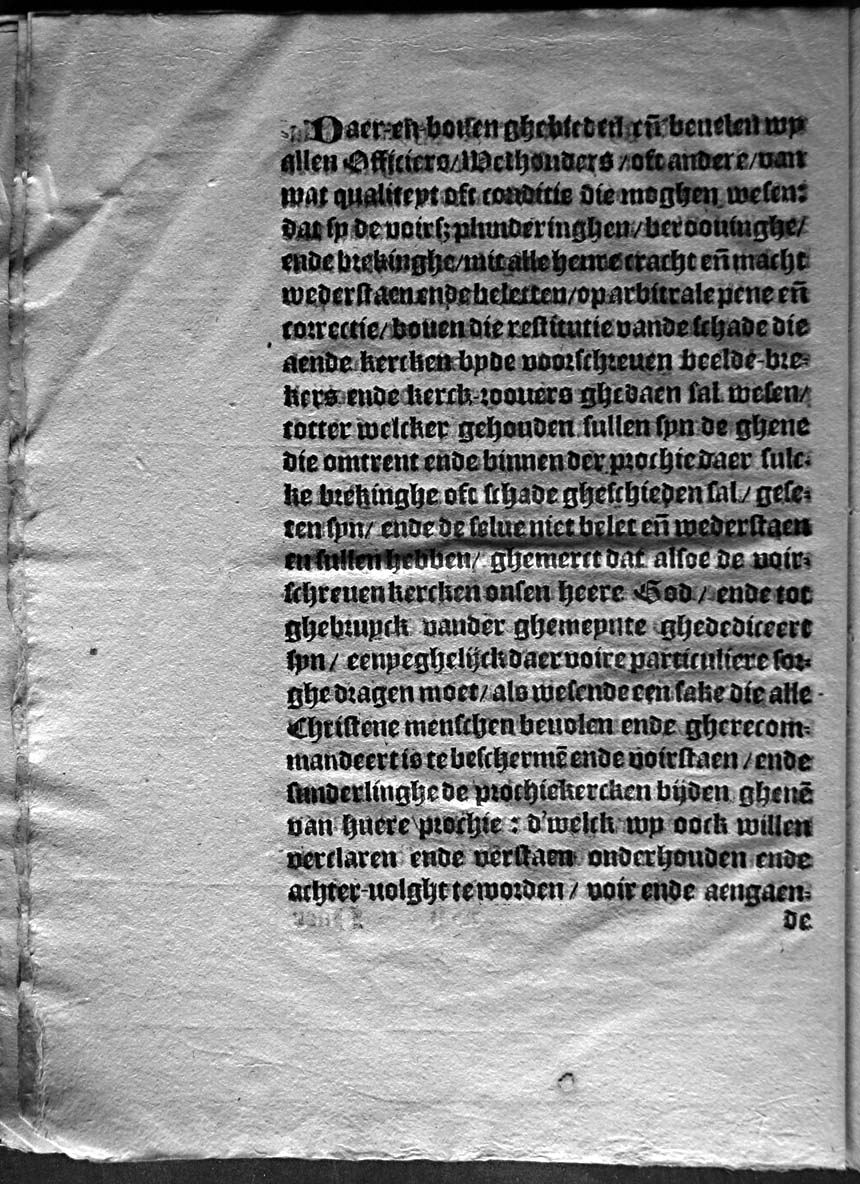 Daer-en-bouen ghebieden en̄ beuelen wy
allen Officiers/Wethouders/oft andere/van
wat qualiteyt oft conditie die moghen wesen:
dat sy de voirs; plunderinghen/berouinghe/
ende brekinghe/mit alle heure cracht en̄ macht
wederstaen ende beletten/op arbitrale pene en̄
correctie/bouen die restitutie vande schade die
aende kercken byde voorschreuen beelde-bre-
kers ende kerck-roouers ghedaen sal wesen/
totter welcker gehouden sullen syn de ghene
die omtrent ende binnen der prochie daer sulc-
ke brekinghe oft schade gheschieden sal/ gese-
ten syn/ ende de selue niet belet en̄ wederstaen
en sullen hebben/ ghemerct dat alsoe de voir-
schreuen kercken onsen heere God/ ende tot
ghebruyck vander ghemeynte ghedediceert
syn/ eenyeghelijck daer voire particuliere sor-
ghe dragen moet/ als wesende een sake die alle
Christene menschen beuolen ende gherecom-
mandeert is te beschermē ende voirstaen/ende
sunderlinghe de prochiekercken bijden ghenē
van huere prochie: d'welck wy oock willen
verclaren ende verstaen onderhouden ende
achter-uolght te worden/ voir ende aengaen-
de